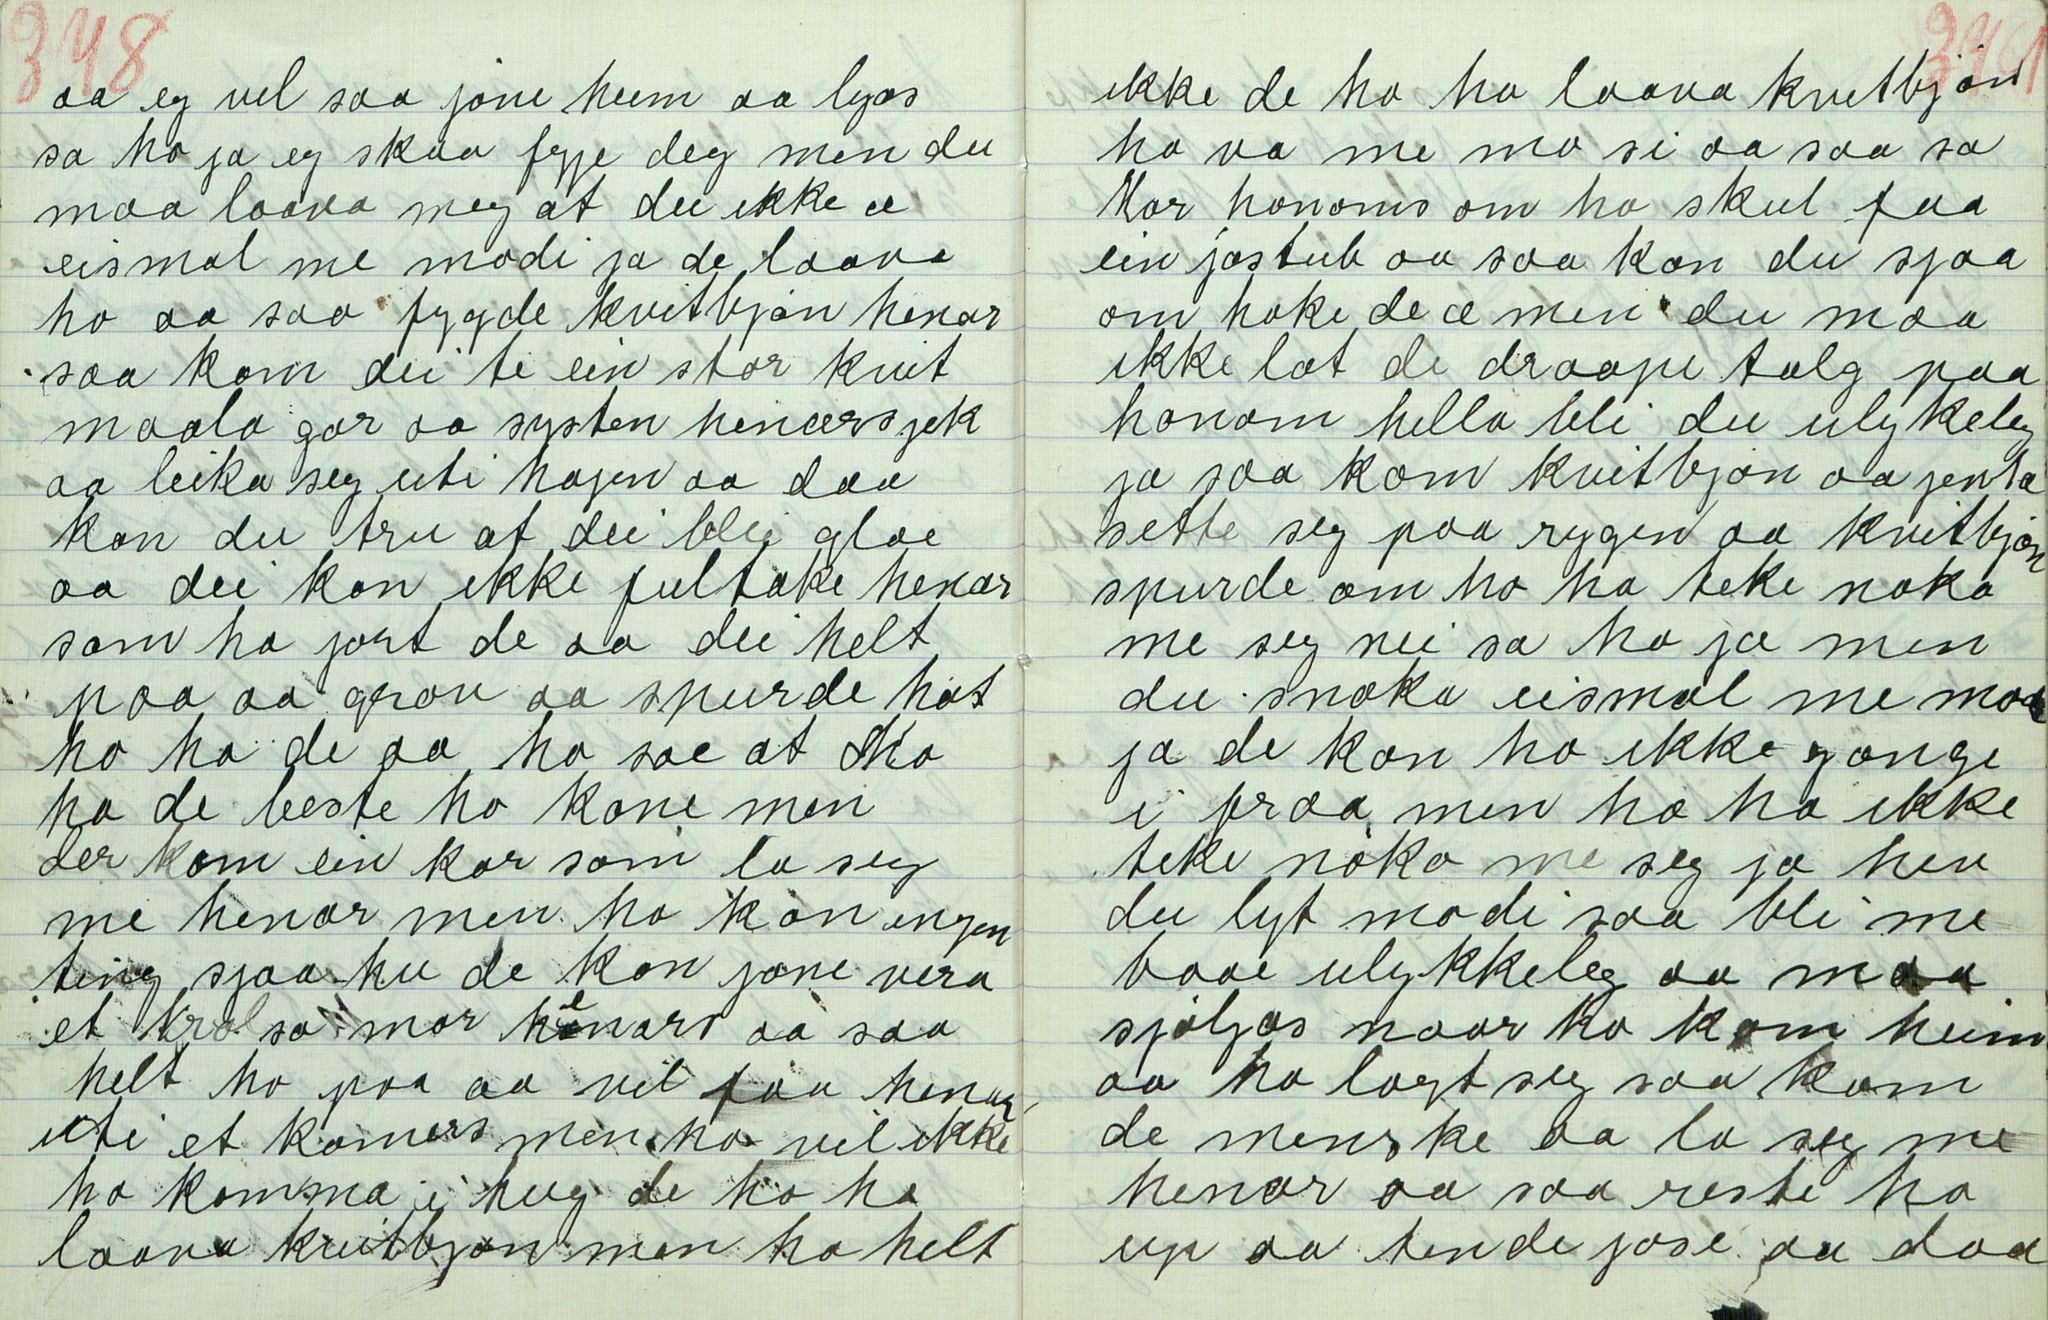 348
aa eg vel saa jöne heim aa lyas
sa ho ja eg skaa fyje deg men du
maa laava meg at du ikke æ
eismal me modi ja de laava
ho aa saa fygde kvitbjøn henar
saa kom dei te ein stor kvit
maala gar aa systen henærsjek
aa leika seg uti hajen aa daa
kan du tru at dei blei glae
aa dei kan ikke fultake henar
som ha jort de aa dei helt
paa aa grov aa spurde hot
ho ha de aa ho sae at ho
ha de beste ho kone men
der kom ein kar som la seg
me henar men ho kan engen
ting sjaa hu de kan jøne vera
et trol sa mor henars aa saa
helt ho paa aa vil faa henar
uti et kamers men ho vil ikke
ho komma i hug de ho ha
laava kvitbjøn men ho helt
349
ikke de ho ha laava kvitbjøn
ho va me mo si aa saa sa
Mor honoms om ho skul faa
ein jastub aa saa kan du sjaa
om hoke de æ men du maa
ikke lat de draape talg paa
honom hella bli du ulykeleg
ja saa kom kvitbjøn aa jenta
sette seg paa rygen aa kvitbjøn
spurde om ho ha teke noko
me seg nei sa ho ja men
du snaka eismal me moe
ja de kan ho ikke gange
i fraa men ho ha ikke
teke noko me seg ja hev
du lyt modi saa bli me
baae ulykkeleg aa maa
sjøljas naar ho kom heim
aa ha lagt seg saa kom
de menske aa la seg me
henar aa saa reste ho
up aa tende jase aa daa